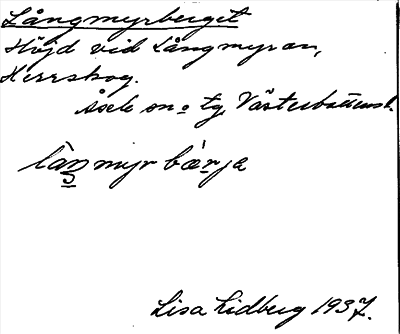 Långmyrberget
Höjd vid Långmyran,
Kerrskog.
Åsele sn o tg Västerbottensl.
låŋmyr bærja
Lisa Lidberg 1937.